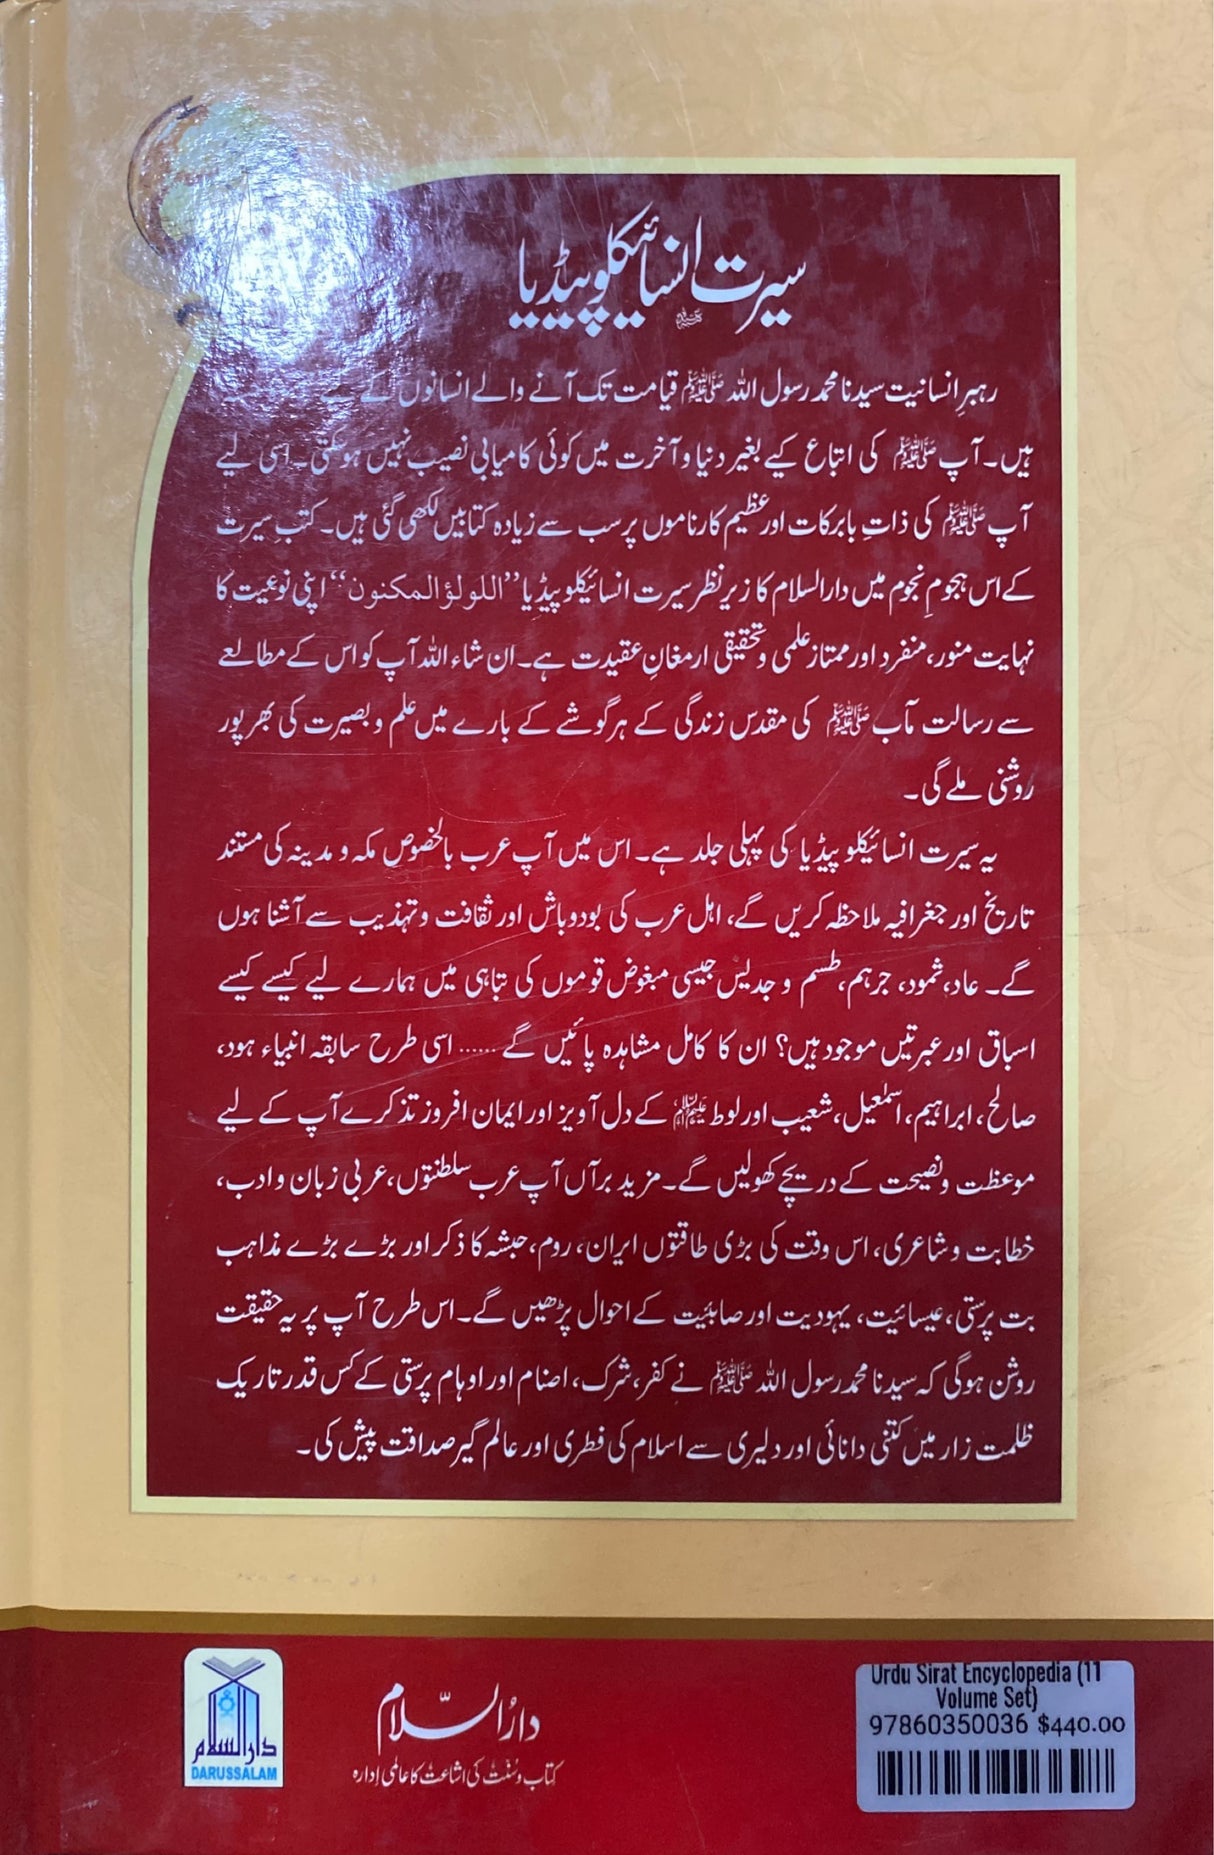 سیرت انسائیکلوپیڈیا
رہبرِ انسانیت سیدنا محمد رسول اللہ ﷺ قیامت تک آنے والے انسانوں کے
ہیں۔ آپ ﷺ کی اتباع کیے بغیر دنیا و آخرت میں کوئی کامیابی نصیب نہیں ہو سکتی۔ اسی لیے
آپ ﷺ کی ذاتِ بابرکات اور عظیم کارناموں پر سب سے زیادہ کتابیں لکھی گئی ہیں۔ کتبِ سیرت
کے اس ہجومِ نجوم میں دارالسلام کا زیرِ نظر سیرت انسائیکلوپیڈیا ”اللولؤ المکنون“ اپنی نوعیت کا
نہایت منور، منفرد اور ممتاز علمی و تحقیقی ارمغانِ عقیدت ہے۔ ان شاء اللہ آپ کو اس کے مطالعے
سے رسالت مآب ﷺ کی مقدس زندگی کے ہر گوشے کے بارے میں علم و بصیرت کی بھرپور
روشنی ملے گی۔
یہ سیرت انسائیکلوپیڈیا کی پہلی جلد ہے۔ اس میں آپ عرب بالخصوص مکہ و مدینہ کی مستند
تاریخ اور جغرافیہ ملاحظہ کریں گے، اہل عرب کی بودوباش اور ثقافت و تہذیب سے آشنا ہوں
گے۔ عاد، ثمود، جرہم، طسم و جدیس جیسی مبغوض قوموں کی تباہی میں ہمارے لیے کیسے کیسے
اسباق اور عبرتیں موجود ہیں؟ ان کا کامل مشاہدہ پائیں گے ...... اسی طرح سابقہ انبیاء ہود،
صالح، ابراہیم، اسمٰعیل، شعیب اور لوط علیہم السلام کے دل آویز اور ایمان افروز تذکرے آپ کے لیے
موعظت و نصیحت کے دریچے کھولیں گے۔ مزید برآں آپ عرب سلطنتوں، عربی زبان و ادب،
خطابت و شاعری، اس وقت کی بڑی طاقتوں ایران، روم، حبشہ کا ذکر اور بڑے بڑے مذاہب
بت پرستی، عیسائیت، یہودیت اور صابئیت کے احوال پڑھیں گے۔ اس طرح آپ پر یہ حقیقت
روشن ہوگی کہ سیدنا محمد رسول اللہ ﷺ نے کفر، شرک، اصنام اور اوہام پرستی کے کس قدر تاریک
ظلمت زار میں کتنی دانائی اور دلیری سے اسلام کی فطری اور عالم گیر صداقت پیش کی۔
دارالسلام
DARUSSALAM
دارُ السّلام
کتاب و سنت کی اشاعت کا عالمی ادارہ
Urdu Sirat Encyclopedia (11
Volume Set)
97860350036 $440.00